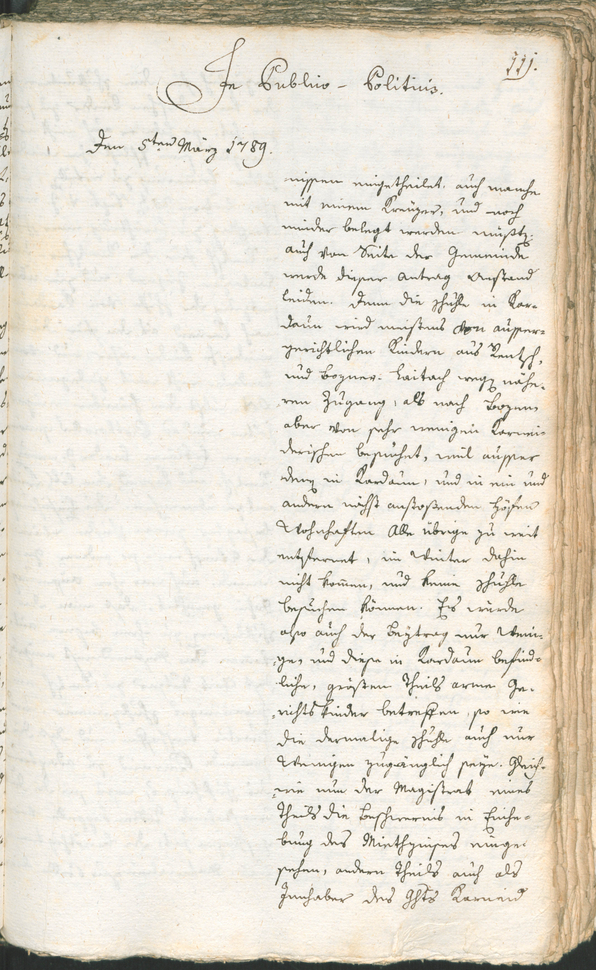 111.
In Publico-Politicis.
Den 5ten März 1789.
nissen eingetheilet. auch manche
mit einem Kreüzer, und noch
minder belegt werden müßte;
auch von Seite der Gemeinde
werde dieser Antrag Anstand
leiden. Denn die Schule in Kar-
daun wird meistens von ausser-
gerichtlichen Kindern aus Rentsch,
und Bozner-Laitach wegen nähe-
ren Zugang, als nach Bozen,
aber von sehr wenigen Karnei-
derischen besuchet, weil ausser
denen in Kardaun, und in ein und
andern nächst anstossenden Höfen
Wohnhaften Alle übrige zu weit
entfernet, im Winter dahin
nicht kommen, und keine Schule
besuchen können. Es würde
also auch der Beytrag nur Weni-
ge, und diese in Kardaun befind-
liche, größten Theils arme Ge-
richts Kinder betreffen, so wie
die dermalige Schule auch nur
Wenigen zugänglich seye. Gleich-
wie nun der Magistrat eines
Theils die Beschwernis in Einhe-
bung des Miethzinses einge-
sehen, andern Theils auch als
Innhaber des Ghts Karneid